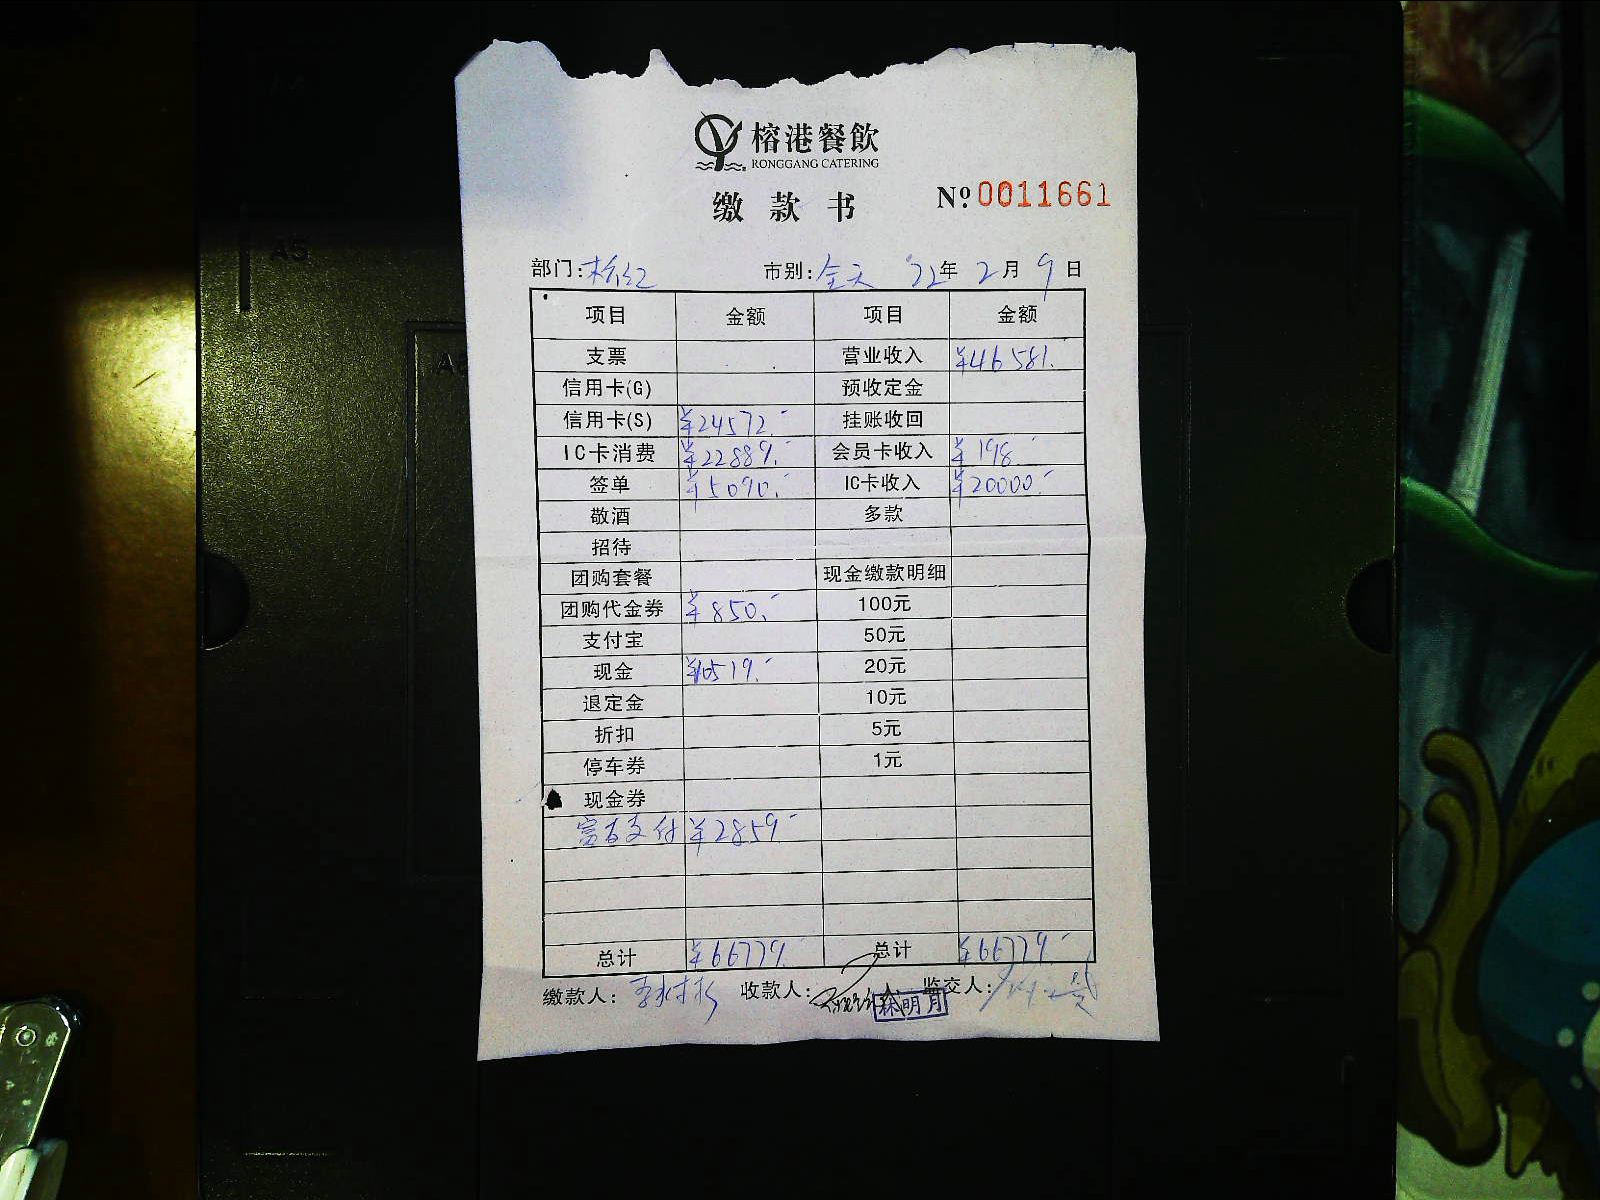 榕港餐飲
RONGGANG CATERING
缴款书 Nº.0011661
部门: 市别:全天 '22年 2月 9日
项目 金额 项目 金额
支票 营业收入 ¥46581.
信用卡(G) 预收定金
信用卡(S) ¥24572.- 挂账收回
IC卡消费 ¥22889.- 会员卡收入 ¥198.-
签单 ¥5090.- IC卡收入 ¥20000.-
敬酒 多款
招待
团购套餐 现金缴款明细
团购代金券 ¥850.- 100元
支付宝 50元
现金 ¥10519.- 20元
退定金 10元
折扣 5元
停车券 1元
现金券
富友支付 ¥2859.-
总计 ¥66779.- 总计 ¥66779.-
缴款人: 收款人: 人 监交人:
林明月
A5